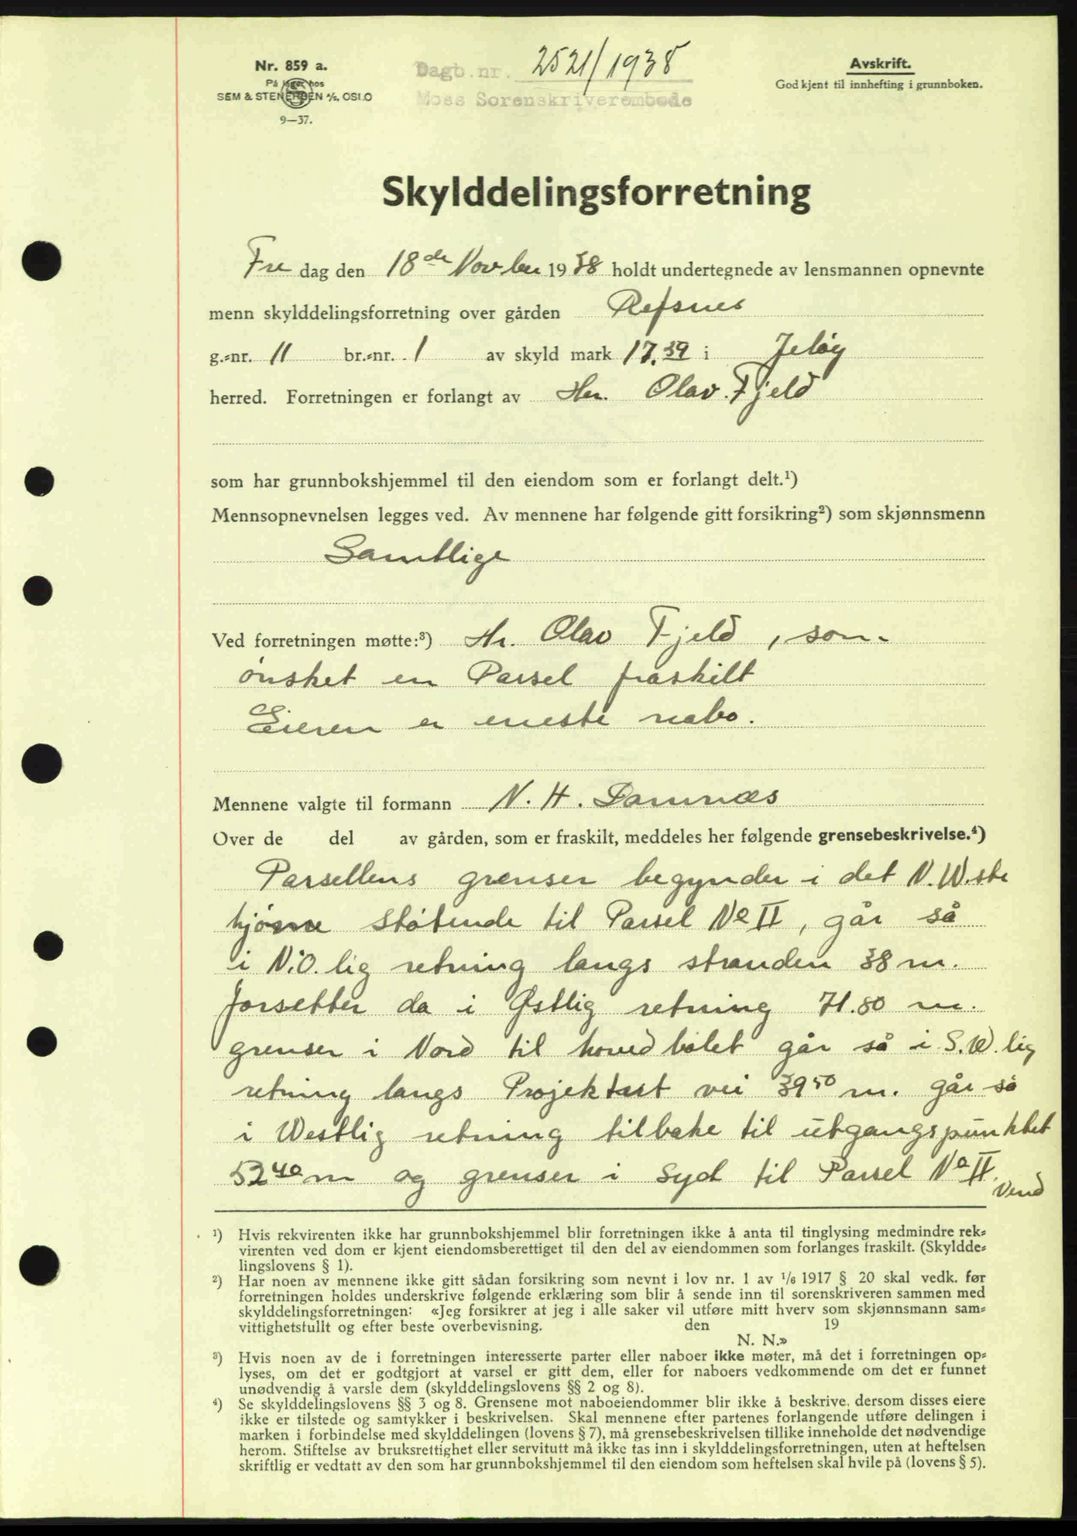 Nr. 859 a.
På lager hos
SEM & STENERSEN A/S, OSLO
9—37.
Dagb.nr. 2521/1938
Moss Sorenskriverembede
Avskrift.
God kjent til innhefting i grunnboken.
Skylddelingsforretning
Fre dag den 18de Novber 1938 holdt undertegnede av lensmannen opnevnte
menn skylddelingsforretning over gården Refsnes
g.-nr. 11 br.-nr. 1 av skyld mark 17.39 i Jeløy
herred. Forretningen er forlangt av Hr. Olav Fjeld
som har grunnbokshjemmel til den eiendom som er forlangt delt.¹)
Mennsopnevnelsen legges ved. Av mennene har følgende gitt forsikring²) som skjønnsmenn
Samtlige
Ved forretningen møtte:³) Hr. Olav Fjeld, som
ønsket en Parsel fraskilt
Eieren er eneste nabo.
Mennene valgte til formann N. H. Damnæs
Over de del av gården, som er fraskilt, meddeles her følgende grensebeskrivelse.⁴)
Parsellens grenser begynder i det N.W.ste
hjørne støtende til Parsel No II, går så
i N.O.lig retning langs stranden 38 m.
forsetter da i Østlig retning 71.80 m.
grenser i Nord til hovedbølet går så i S.W.lig
retning langs Projektert vei 39⁵⁰ m. går så
i Westlig retning tilbake til utgangspunktet
53⁴⁰ m og grenser i Syd til Parsel No II.
Vend
¹) Hvis rekvirenten ikke har grunnbokshjemmel blir forretningen ikke å anta til tinglysing medmindre rek-
virenten ved dom er kjent eiendomsberettiget til den del av eiendommen som forlanges fraskilt. (Skyldde-
lingslovens § 1).
²) Har noen av mennene ikke gitt sådan forsikring som nevnt i lov nr. 1 av 1/6 1917 § 20 skal vedk. før
forretningen holdes underskrive følgende erklæring som blir å sende inn til sorenskriveren sammen med
skylddelingsforretningen: «Jeg forsikrer at jeg i alle saker vil utføre mitt hverv som skjønnsmann sam-
vittighetsfullt og efter beste overbevisning. den 19
N. N.»
³) Hvis noen av de i forretningen interesserte parter eller naboer ikke møter, må det i forretningen op-
lyses, om det er godtgjort at varsel er gitt dem, eller for naboers vedkommende om det er funnet
unødvendig å varsle dem (skylddelingslovens §§ 2 og 8).
⁴) Se skylddelingslovens §§ 3 og 8. Grensene mot naboeiendommer blir ikke å beskrive, dersom disses eiere
ikke er tilstede og samtykker i beskrivelsen. Skal mennene efter partenes forlangende utføre delingen i
marken i forbindelse med skylddelingen (lovens § 7), må grensebeskrivelsen tillike inneholde det nødvendige
herom. Stiftelse av bruksrettighet eller servitutt må ikke tas inn i skylddelingsforretningen, uten at heftelsen
skriftlig er vedtatt av den som har grunnbokshjemmel til den eiendom som heftelsen skal hvile på (lovens § 5).